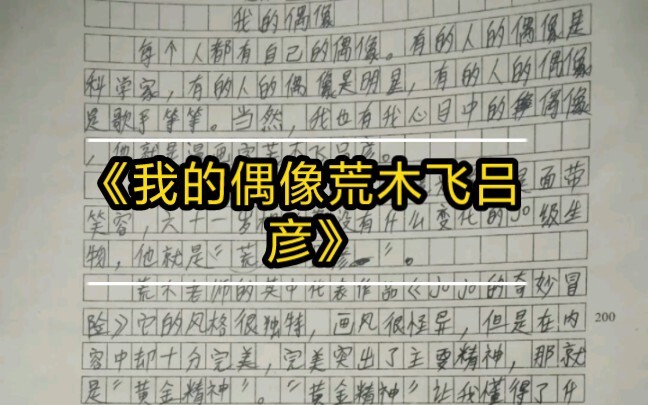 我的偶像
每个人都有自己的偶像。有的人的偶像是
科学家，有的人的偶像是明星，有的人的偶像
是歌手等等。当然，我也有我心目中的偶像
，他就是漫画家荒木飞吕彦。
《我的偶像荒木飞吕
彦》
是面带
笑容，六十一岁没有什么变化的JO级生
物，他就是“荒
荒木老师的其中代表作品《JOJO的奇妙冒
险》它的风格很独特，画风很怪异，但是在内
200
容中却十分完美，完美突出了主要精神，那就
是“黄金精神”。“黄金精神”让我懂得了什